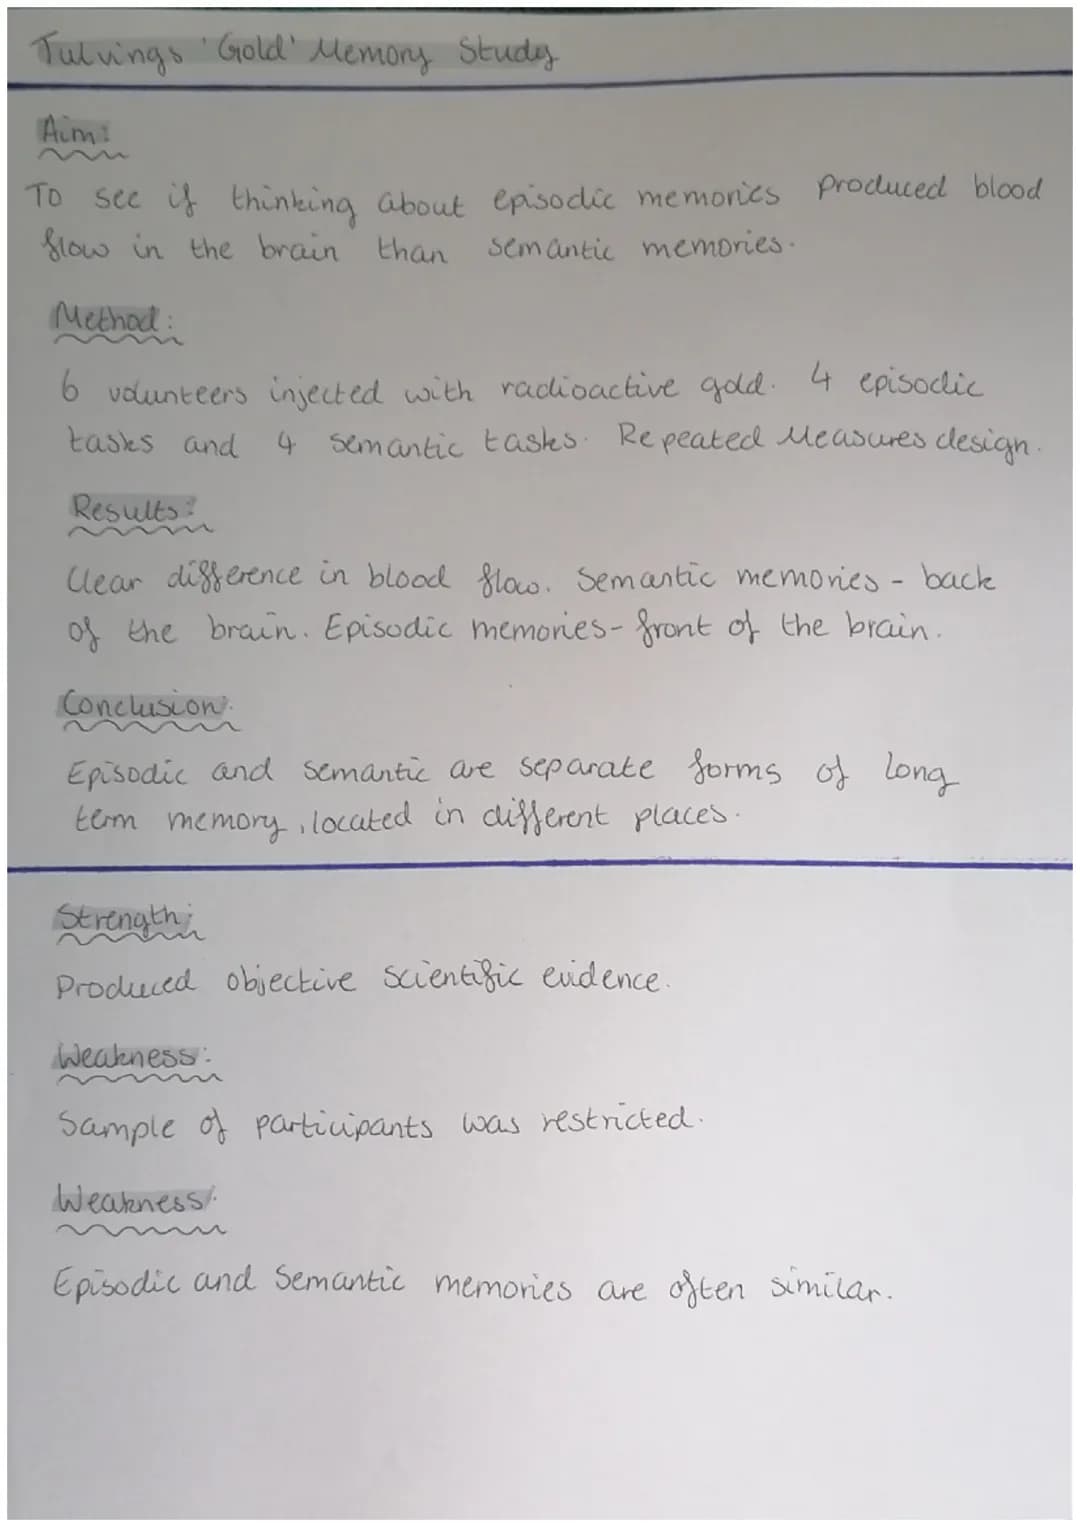 Tulvings 'Gold' Memory Study
Aim:
To see if thinking about episodic memories produced blood
flow in the brain than semantic memories.
Method:
6 volunteers injected with radioactive gold. 4 episodic
tasks and 4 semantic tasks. Repeated Measures design.
Results:
Clear difference in blood flow. Semantic memories - back
of the brain. Episodic memories - front of the brain.
Conclusion:
Episodic and semantic are separate forms of long
term memory, located in different places.
Strength:
Produced objective scientific evidence.
Weakness:
Sample of participants was restricted.
Weakness:
Episodic and Semantic memories are often similar.